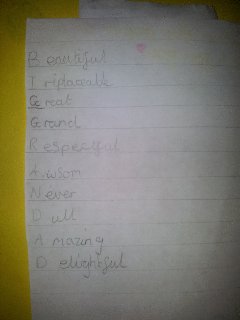 B eautiful
I riplaceable
G reat
G rand
R espectful
A wsom
N ever
D ull
A mazing
D elightful